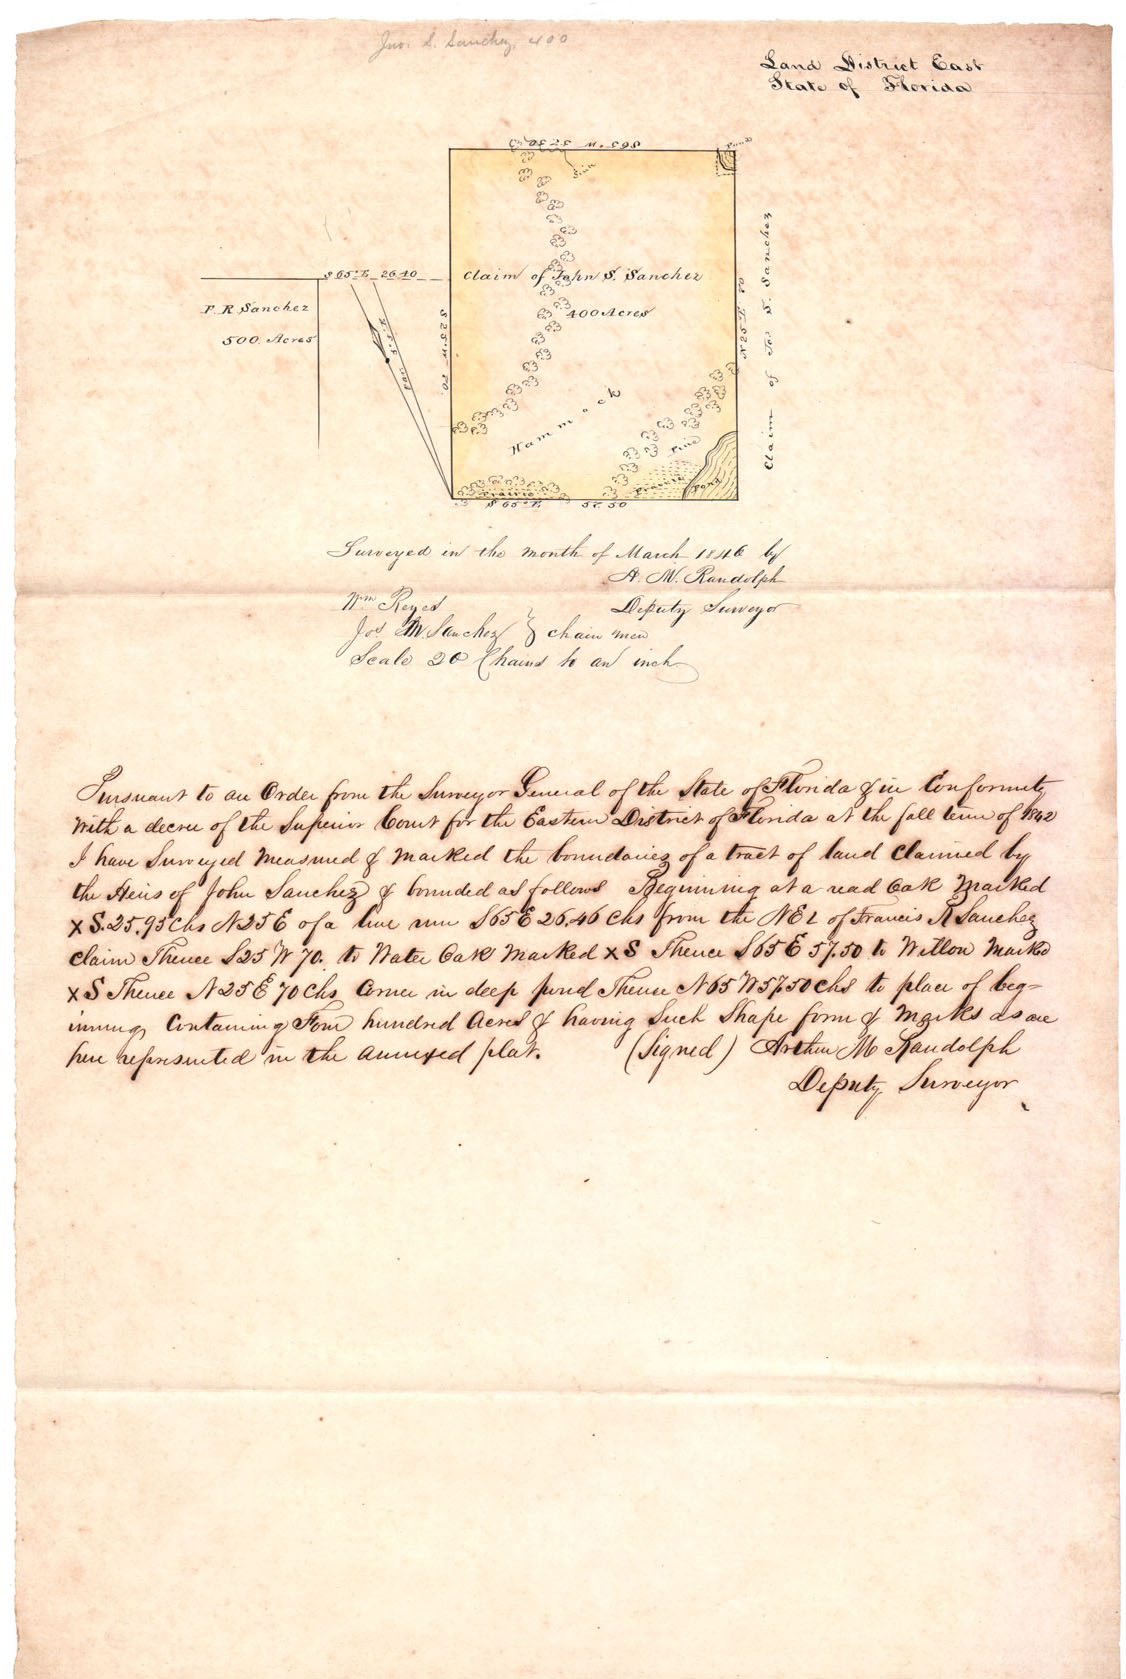 Jno. S. Sanchez. 400
Land District East
State of Florida
Pond
Pine
S 65° E 26.40
Claim of John S. Sanchez
400 Acres
F. R. Sanchez
500 Acres
S 25° W 70.
N 25° E 70
Claim of Jos S. Sanchez
Hammock
Pine
Prairie
Prairie
Pond
S 65° E 57.50
Surveyed in the month of March 1846 by
A. M. Randolph
Deputy Surveyor
Wm Reyes
Jos M. Sanchez } chain men
Scale 20 Chains to an inch
Pursuant to an Order from the Surveyor General of the State of Florida & in Conformity
with a decree of the Superior Court for the Eastern District of Florida at the fall term of 1842
I have Surveyed Measured & Marked the boundaries of a tract of land Claimed by
the Heirs of John Sanchez & bounded as follows Beginning at a read Oak Marked
X S. 25.95 Chs N 25 E of a line run S 65 E 26.46 Chs from the NE of Francis R Sanchez
claim Thence S 25 W 70. to Water Oak Marked X S Thence S 65 E 57.50 to Willow Marked
X S Thence N 25 E 70 Chs Corner in deep pond Thence N 65 W 57.50 Chs to place of beg-
inning Containing Four hundred Acres & having Such Shape form & Marks as are
here represented in the annexed plat. (Signed) Arthur M Randolph
Deputy Surveyor